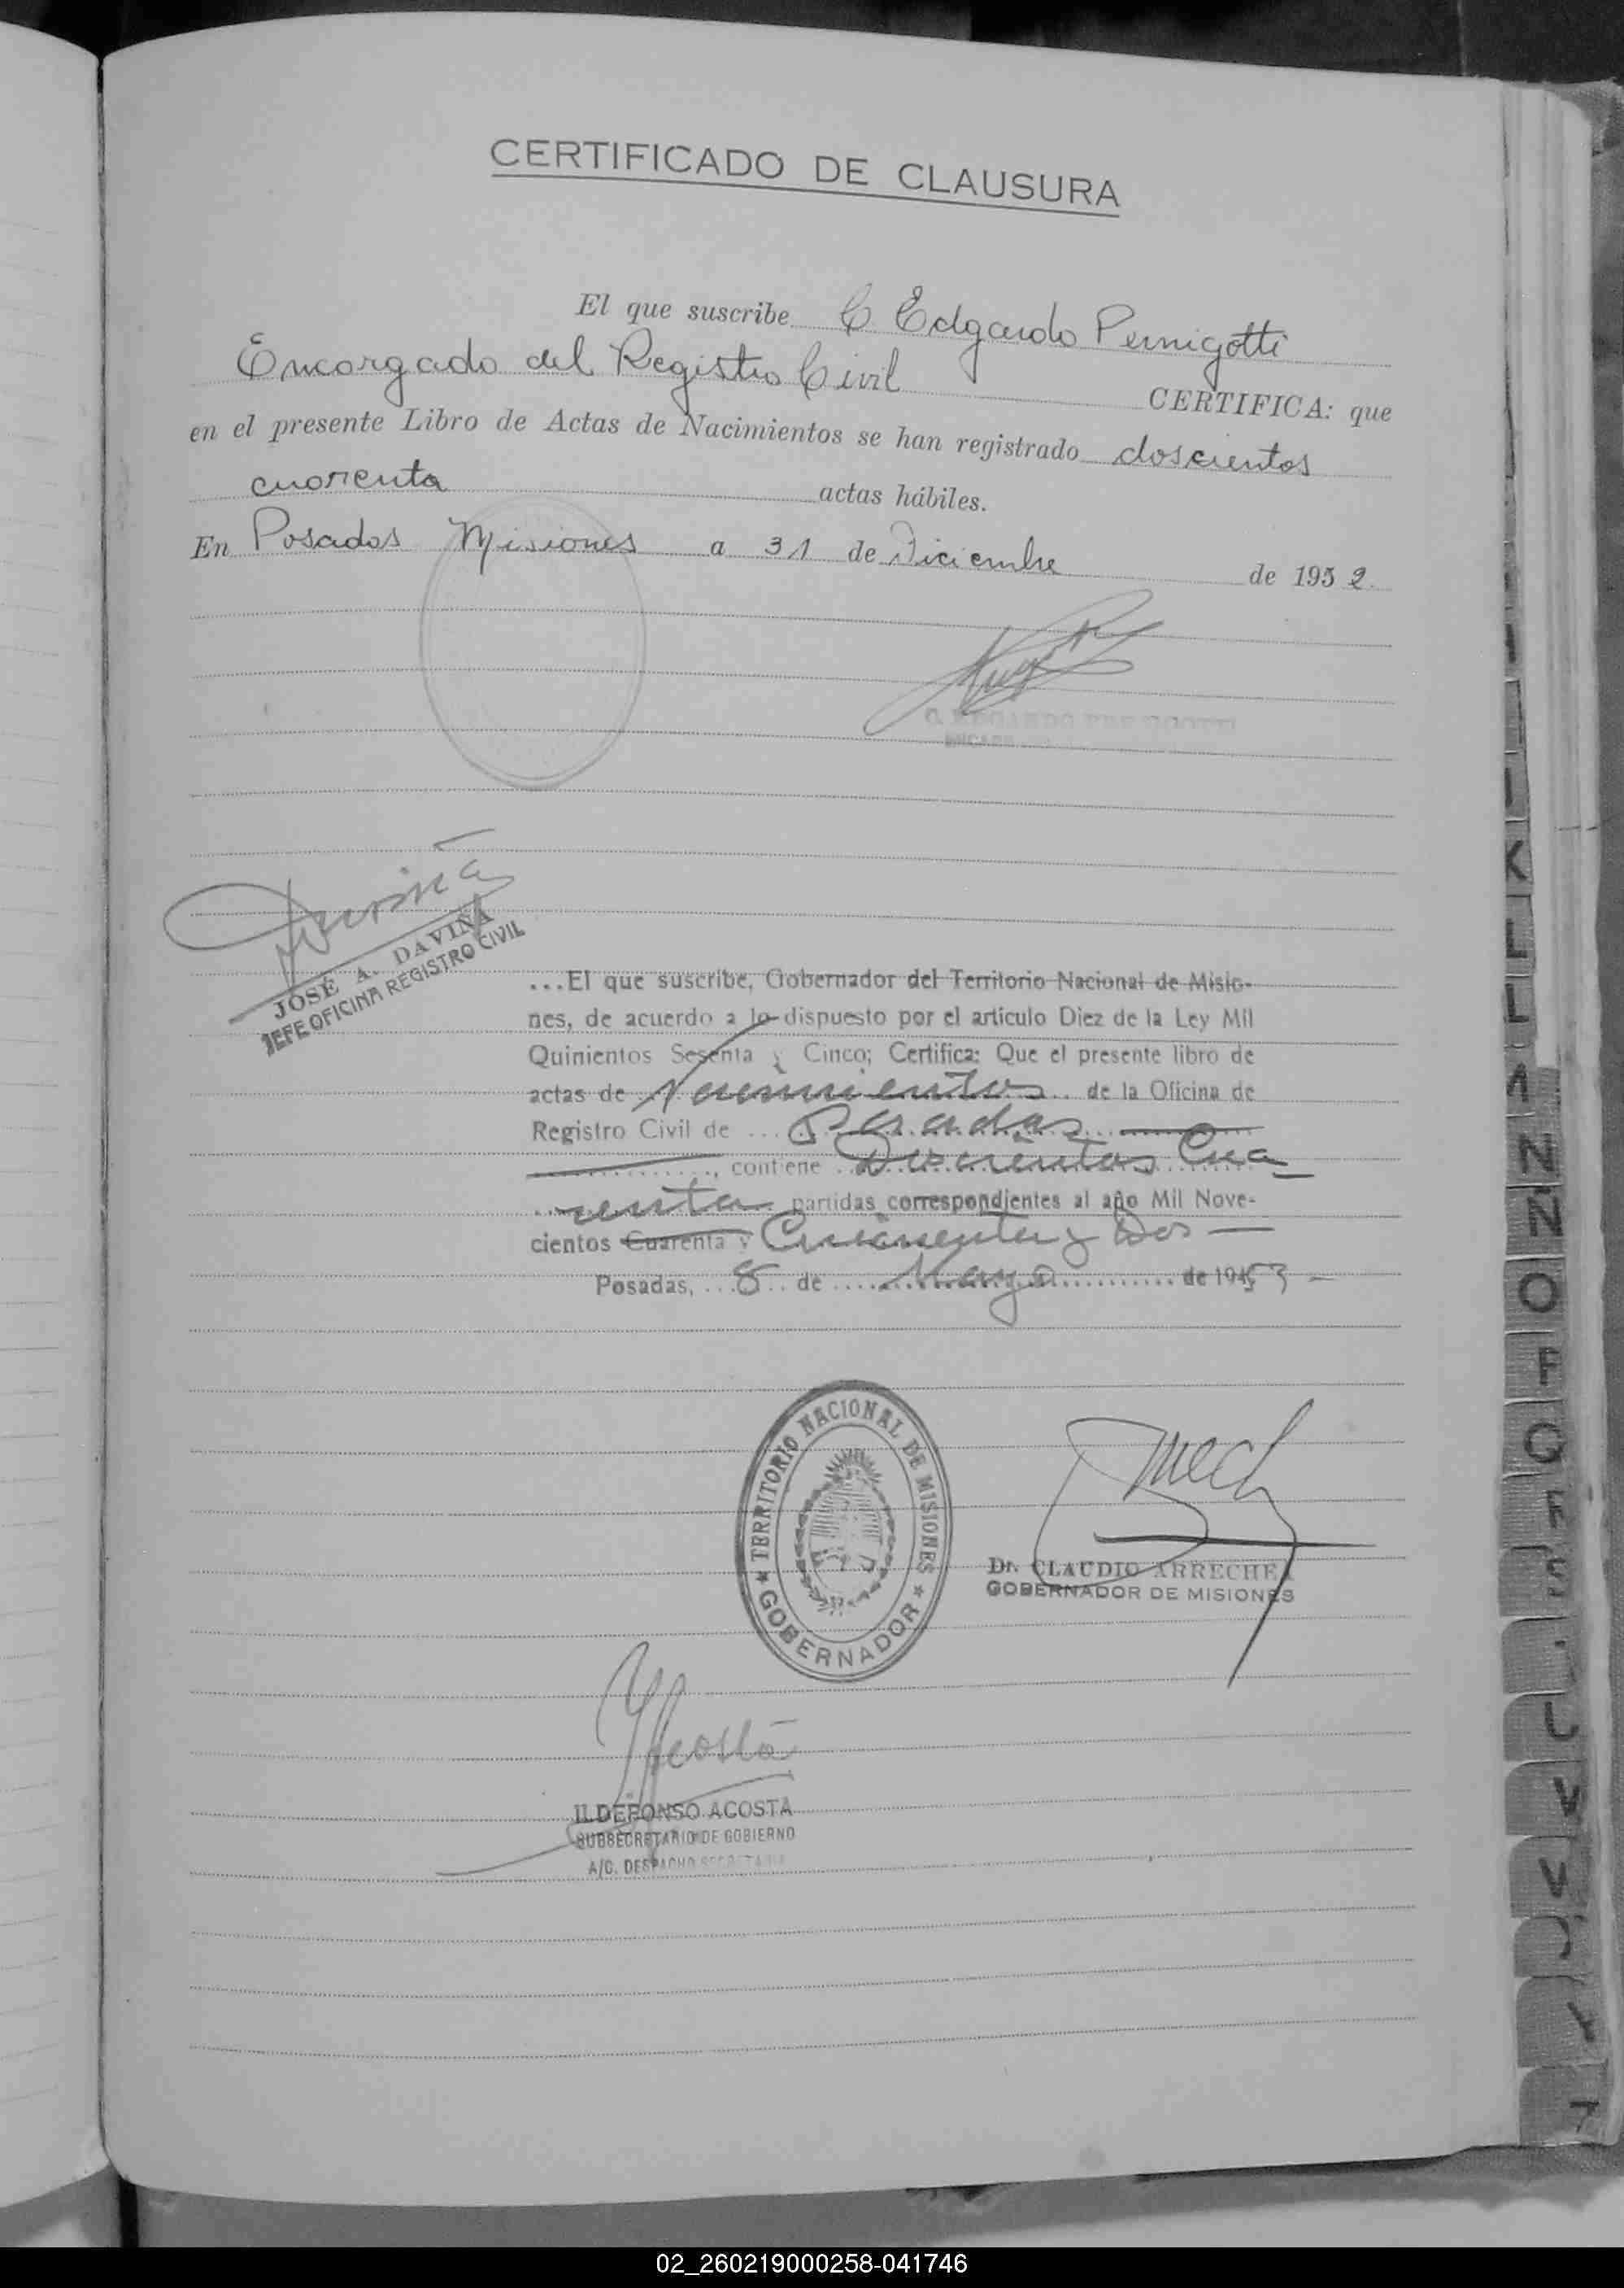 CERTIFICADO DE CLAUSURA
El que suscribe C. Edgardo Pernigotti
Encargado del Registro Civil CERTIFICA: que
en el presente Libro de Actas de Nacimientos se han registrado doscientos
cuarenta actas hábiles.
En Posadas Misiones a 31 de Diciembre de 1952.
C. EDGARDO PERNIGOTTI
JOSÉ A. DAVIÑA
JEFE OFICINA REGISTRO CIVIL
...El que suscribe, Gobernador del Territorio Nacional de Misio-
nes, de acuerdo a lo dispuesto por el artículo Diez de la Ley Mil
Quinientos Sesenta y Cinco; Certifica: Que el presente libro de
actas de Nacimientos de la Oficina de
Registro Civil de ... Posadas
, contiene Doscientos Cua
renta partidas correspondientes al año Mil Nove-
cientos Cuarenta y Cincuenta y Dos —
Posadas, ...8... de ...Mayo... de 1953 —
TERRITORIO NACIONAL DE MISIONES
★ GOBERNADOR ★
Dr. CLAUDIO ARRECHEA
GOBERNADOR DE MISIONES
Acosta
ILDEFONSO ACOSTA
SUBSECRETARIO DE GOBIERNO
A/C. DESPACHO SECRETARIA
K
L
L
A
N
Ñ
O
P
Q
R
S
U
V
V
J
Y
Z
02_260219000258-041746